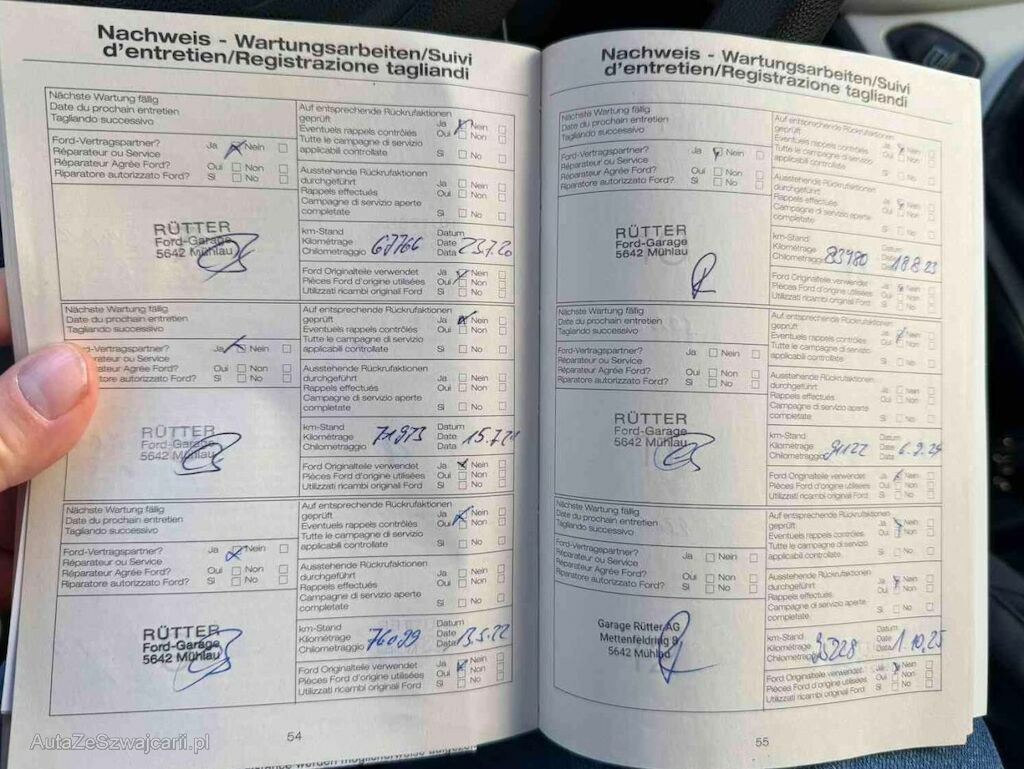 Nachweis - Wartungsarbeiten/Suivi
d'entretien/Registrazione tagliandi
Nächste Wartung fällig
Date du prochain entretien
Tagliando successivo
Ford-Vertragspartner? Ja Nein
Réparateur ou Service
Réparateur Agrée Ford? Oui Non
Riparatore autorizzato Ford? Si No
RÜTTER
Ford-Garage
5642 Mühlau
Auf entsprechende Rückrufaktionen
geprüft Ja Nein
Eventuels rappels contrôlés Oui Non
Tutte le campagne di servizio
applicabili controllate Si No
Ausstehende Rückrufaktionen
durchgeführt Ja Nein
Rappels effectués Oui Non
Campagne di servizio aperte
completate Si No
km-Stand Datum
Kilométrage 67766 Date 23.7.20
Chilometraggio Data
Ford Originalteile verwendet Ja Nein
Pièces Ford d'origine utilisées Oui Non
Utilizzati ricambi original Ford Si No
Nächste Wartung fällig
Date du prochain entretien
Tagliando successivo
-Vertragspartner? Ja Nein
ateur ou Service
ateur Agrée Ford? Oui Non
Riparatore autorizzato Ford? Si No
RÜTTER
Ford-Garage
5642 Mühlau
Auf entsprechende Rückrufaktionen
geprüft Ja Nein
Eventuels rappels contrôlés Oui Non
Tutte le campagne di servizio
applicabili controllate Si No
Ausstehende Rückrufaktionen
durchgeführt Ja Nein
Rappels effectués Oui Non
Campagne di servizio aperte
completate Si No
km-Stand Datum
Kilométrage 71973 Date 15.7.21
Chilometraggio Data
Ford Originalteile verwendet Ja Nein
Pièces Ford d'origine utilisées Oui Non
Utilizzati ricambi original Ford Si No
Nächste Wartung fällig
Date du prochain entretien
Tagliando successivo
Ford-Vertragspartner? Ja Nein
Réparateur ou Service
Réparateur Agrée Ford? Oui Non
Riparatore autorizzato Ford? Si No
RÜTTER
Ford-Garage
5642 Mühlau
Auf entsprechende Rückrufaktionen
geprüft Ja Nein
Eventuels rappels contrôlés Oui Non
Tutte le campagne di servizio
applicabili controllate Si No
Ausstehende Rückrufaktionen
durchgeführt Ja Nein
Rappels effectués Oui Non
Campagne di servizio aperte
completate Si No
km-Stand Datum
Kilométrage 76099 Date 13.5.22
Chilometraggio Data
Ford Originalteile verwendet Ja Nein
Pièces Ford d'origine utilisées Oui Non
Utilizzati ricambi original Ford Si No
54
Nachweis - Wartungsarbeiten/Suivi
d'entretien/Registrazione tagliandi
Nächste Wartung fällig
Date du prochain entretien
Tagliando successivo
Ford-Vertragspartner? Ja Nein
Réparateur ou Service
Réparateur Agrée Ford? Oui Non
Riparatore autorizzato Ford? Si No
RÜTTER
Ford-Garage
5642 Mühlau
Auf entsprechende Rückrufaktionen
geprüft Ja Nein
Eventuels rappels contrôlés Oui Non
Tutte le campagne di servizio
applicabili controllate Si No
Ausstehende Rückrufaktionen
durchgeführt Ja Nein
Rappels effectués Oui Non
Campagne di servizio aperte
completate Si No
km-Stand Datum
Kilométrage 83980 Date 18.8.23
Chilometraggio Data
Ford Originalteile verwendet Ja Nein
Pièces Ford d'origine utilisées Oui Non
Utilizzati ricambi original Ford Si No
Nächste Wartung fällig
Date du prochain entretien
Tagliando successivo
Ford-Vertragspartner? Ja Nein
Réparateur ou Service
Réparateur Agrée Ford? Oui Non
Riparatore autorizzato Ford? Si No
RÜTTER
Ford-Garage
5642 Mühlau
Auf entsprechende Rückrufaktionen
geprüft Ja Nein
Eventuels rappels contrôlés Oui Non
Tutte le campagne di servizio
applicabili controllate Si No
Ausstehende Rückrufaktionen
durchgeführt Ja Nein
Rappels effectués Oui Non
Campagne di servizio aperte
completate Si No
km-Stand Datum
Kilométrage 91122 Date
Chilometraggio Data
Ford Originalteile verwendet Ja Nein
Pièces Ford d'origine utilisées Oui Non
Utilizzati ricambi original Ford Si No
Nächste Wartung fällig
Date du prochain entretien
Tagliando successivo
Ford-Vertragspartner? Ja Nein
Réparateur ou Service
Réparateur Agrée Ford? Oui Non
Riparatore autorizzato Ford? Si No
Garage Rütter AG
Mettenfeldring 9
5642 Mühlau
Auf entsprechende Rückrufaktionen
geprüft Ja Nein
Eventuels rappels contrôlés Oui Non
Tutte le campagne di servizio
applicabili controllate Si No
Ausstehende Rückrufaktionen
durchgeführt Ja Nein
Rappels effectués Oui Non
Campagne di servizio aperte
completate Si No
km-Stand Datum
Kilométrage Date 1.10.25
Chilometraggio Data
Ford Originalteile verwendet Ja Nein
Pièces Ford d'origine utilisées Oui Non
Utilizzati ricambi original Ford Si No
55
AutaZeSzwajcarii.pl